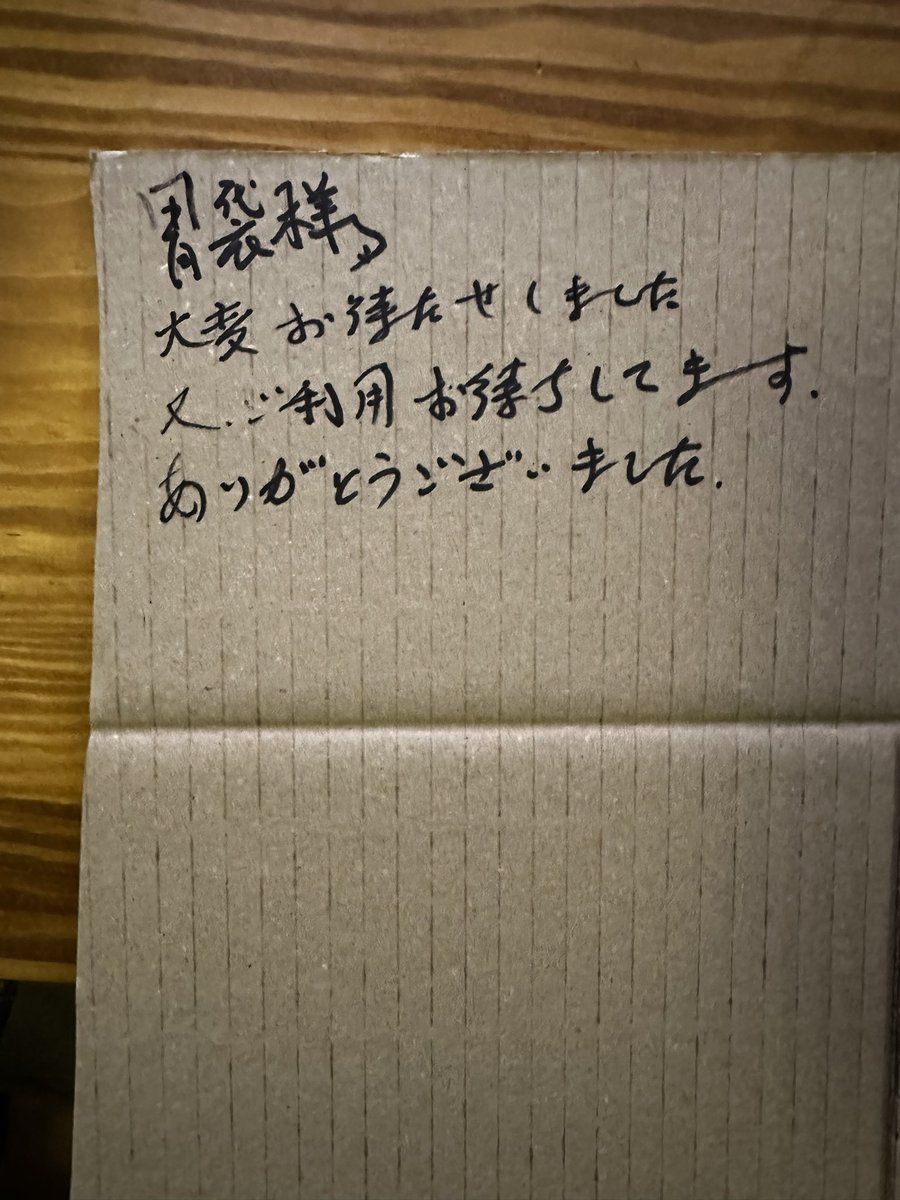 胃袋様
大変お待たせしました
又、ご利用お待ちしてます.
ありがとうございました.